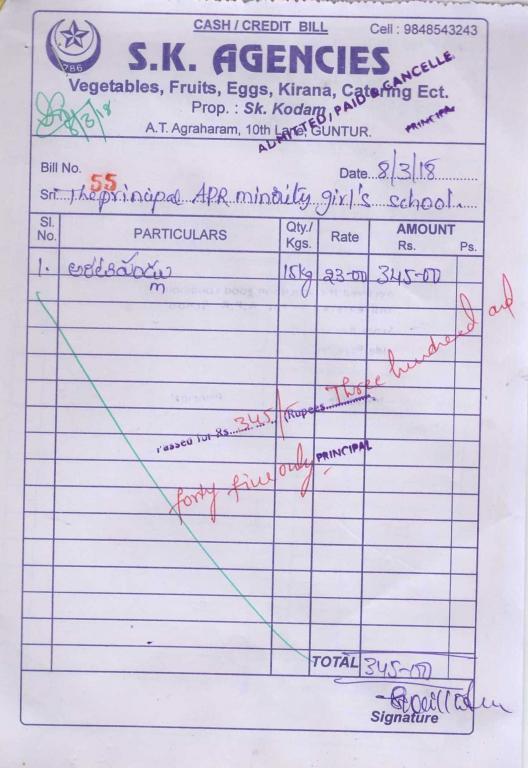 CASH / CREDIT BILL
Cell : 9848543243
786
S.K. AGENCIES
Vegetables, Fruits, Eggs, Kirana, Catering Ect.
Prop. : Sk. Kodam
A.T. Agraharam, 10th Lane, GUNTUR.
ADMITTED, PAID & CANCELLE
PRINCIPAL
8/3/18
Bill No. 55
Date 8/3/18
Sri. The principal APR minority girl's school.
Sl. No. PARTICULARS Qty./ Kgs. Rate AMOUNT Rs. Ps.
1. అరటిపండ్లు 15kg 23-00 345-00
Passed for Rs. 345/- Rupees Three hundread and
forty five only PRINCIPAL
TOTAL 345-00
Signature